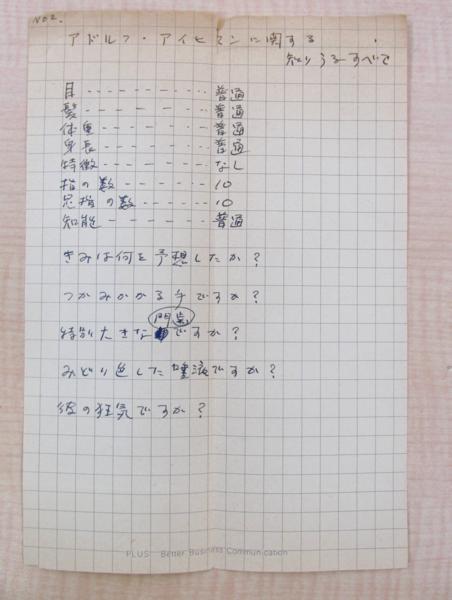 NO2.
アドルフ・アイヒマンに関する
知りうるすべて
目 - - - - - - - - 普通
髪 - - - - - - - - 普通
体重 - - - - - - - 普通
身長 - - - - - - - 普通
特徴 - - - - - - - なし
指の数 - - - - - - 10
足指の数 - - - - - 10
知能 - - - - - - - 普通
きみは何を予想したか？
つかみかかる手ですか？
特別大きな門歯ですか？
みどり色した唾液ですか？
彼の狂気ですか？
PLUS Better Business Communication